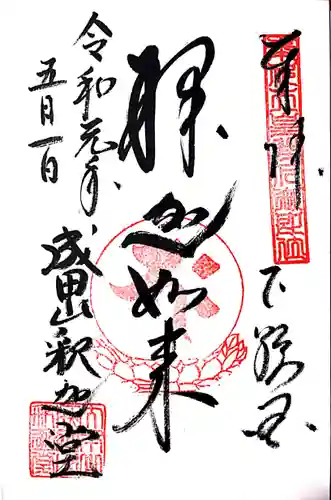 奉拝
下総国
釈迦如来
令和元年
五月一日
成田山釈迦堂